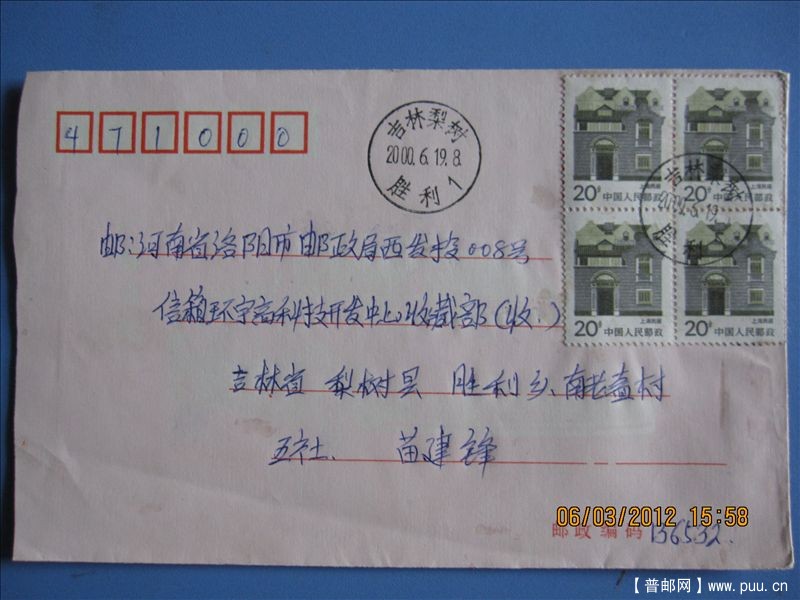 471000
吉林梨树
2000.6.19.8
胜利1
20分
上海民居
中国人民邮政
20分
上海民居
中国人民邮政
20分
上海民居
中国人民邮政
20分
上海民居
中国人民邮政
吉林梨树
2000.6.19
胜利
邮:河南省洛阳市邮政局西发投008号
信箱环宇高科技开发中心收藏部(收.)
吉林省 梨树县 胜利乡、南老壶村
五社. 苗建锋
06/03/2012 15:58
邮政编码 136532.
【普邮网】www.puu.cn